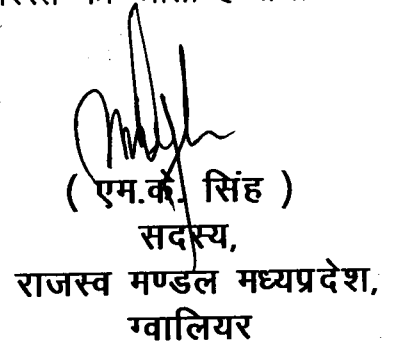 ( एम.के. सिंह )
सदस्य,
राजस्व मण्डल मध्यप्रदेश,
ग्वालियर